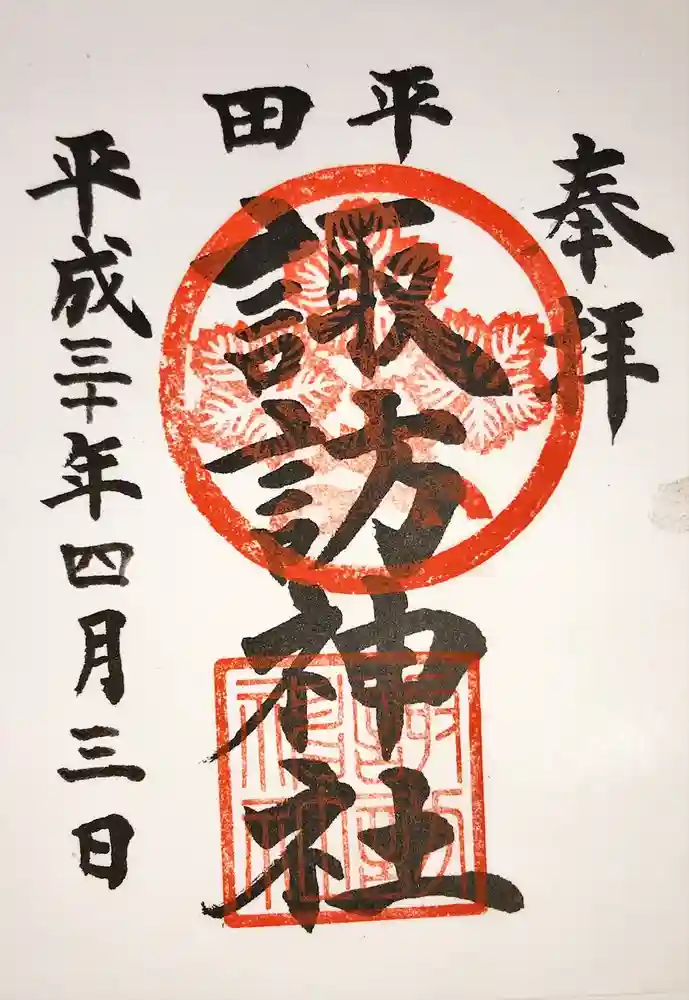 奉拝
平田
諏訪神社
平成三十年四月三日